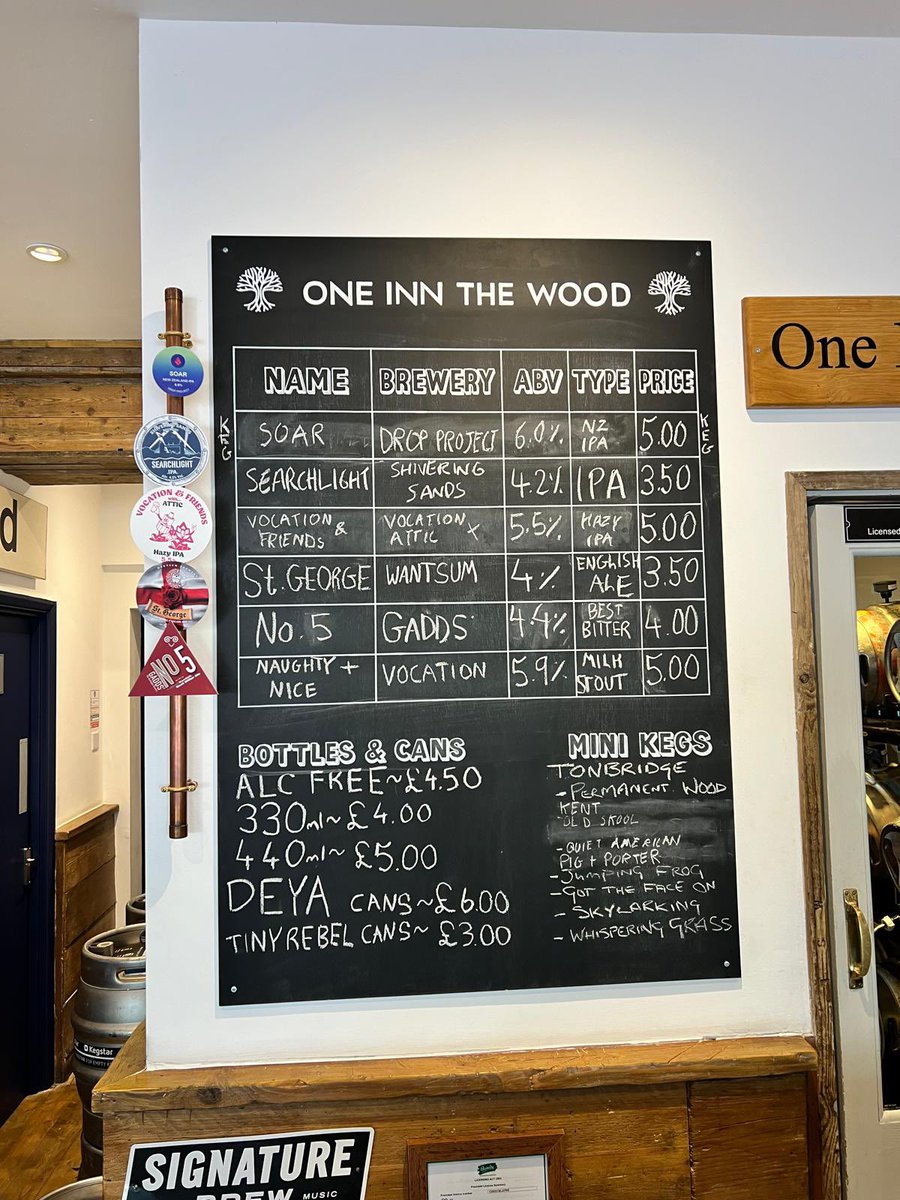 ONE INN THE WOOD
NAME BREWERY ABV TYPE PRICE
KEG SOAR DROP PROJECT 6.0% NZ IPA 5.00 KEG
SEARCHLIGHT SHIVERING SANDS 4.2% IPA 3.50
VOCATION & FRIENDS VOCATION x ATTIC 5.5% HAZY IPA 5.00
St. GEORGE WANTSUM 4% ENGLISH ALE 3.50
No. 5 GADDS' 4.4% BEST BITTER 4.00
NAUGHTY + NICE VOCATION 5.9% MILK STOUT 5.00
BOTTLES & CANS
ALC FREE ~ £4.50
330ml ~ £4.00
440ml ~ £5.00
DEYA CANS ~ £6.00
TINY REBEL CANS ~ £3.00
MINI KEGS
TONBRIDGE
- PERMANENT WOOD
KENT
OLD SKOOL
- QUIET AMERICAN
PIG + PORTER
- JUMPING FROG
- GOT THE FACE ON
- SKYLARKING
- WHISPERING GRASS
SOAR
NEW ZEALAND IPA
SEARCHLIGHT
IPA
VOCATION & FRIENDS
ATTIC
Hazy IPA
St. George
GADDS'
No 5
One
d
Licensed
Kegstar
SIGNATURE
BREW MUSIC